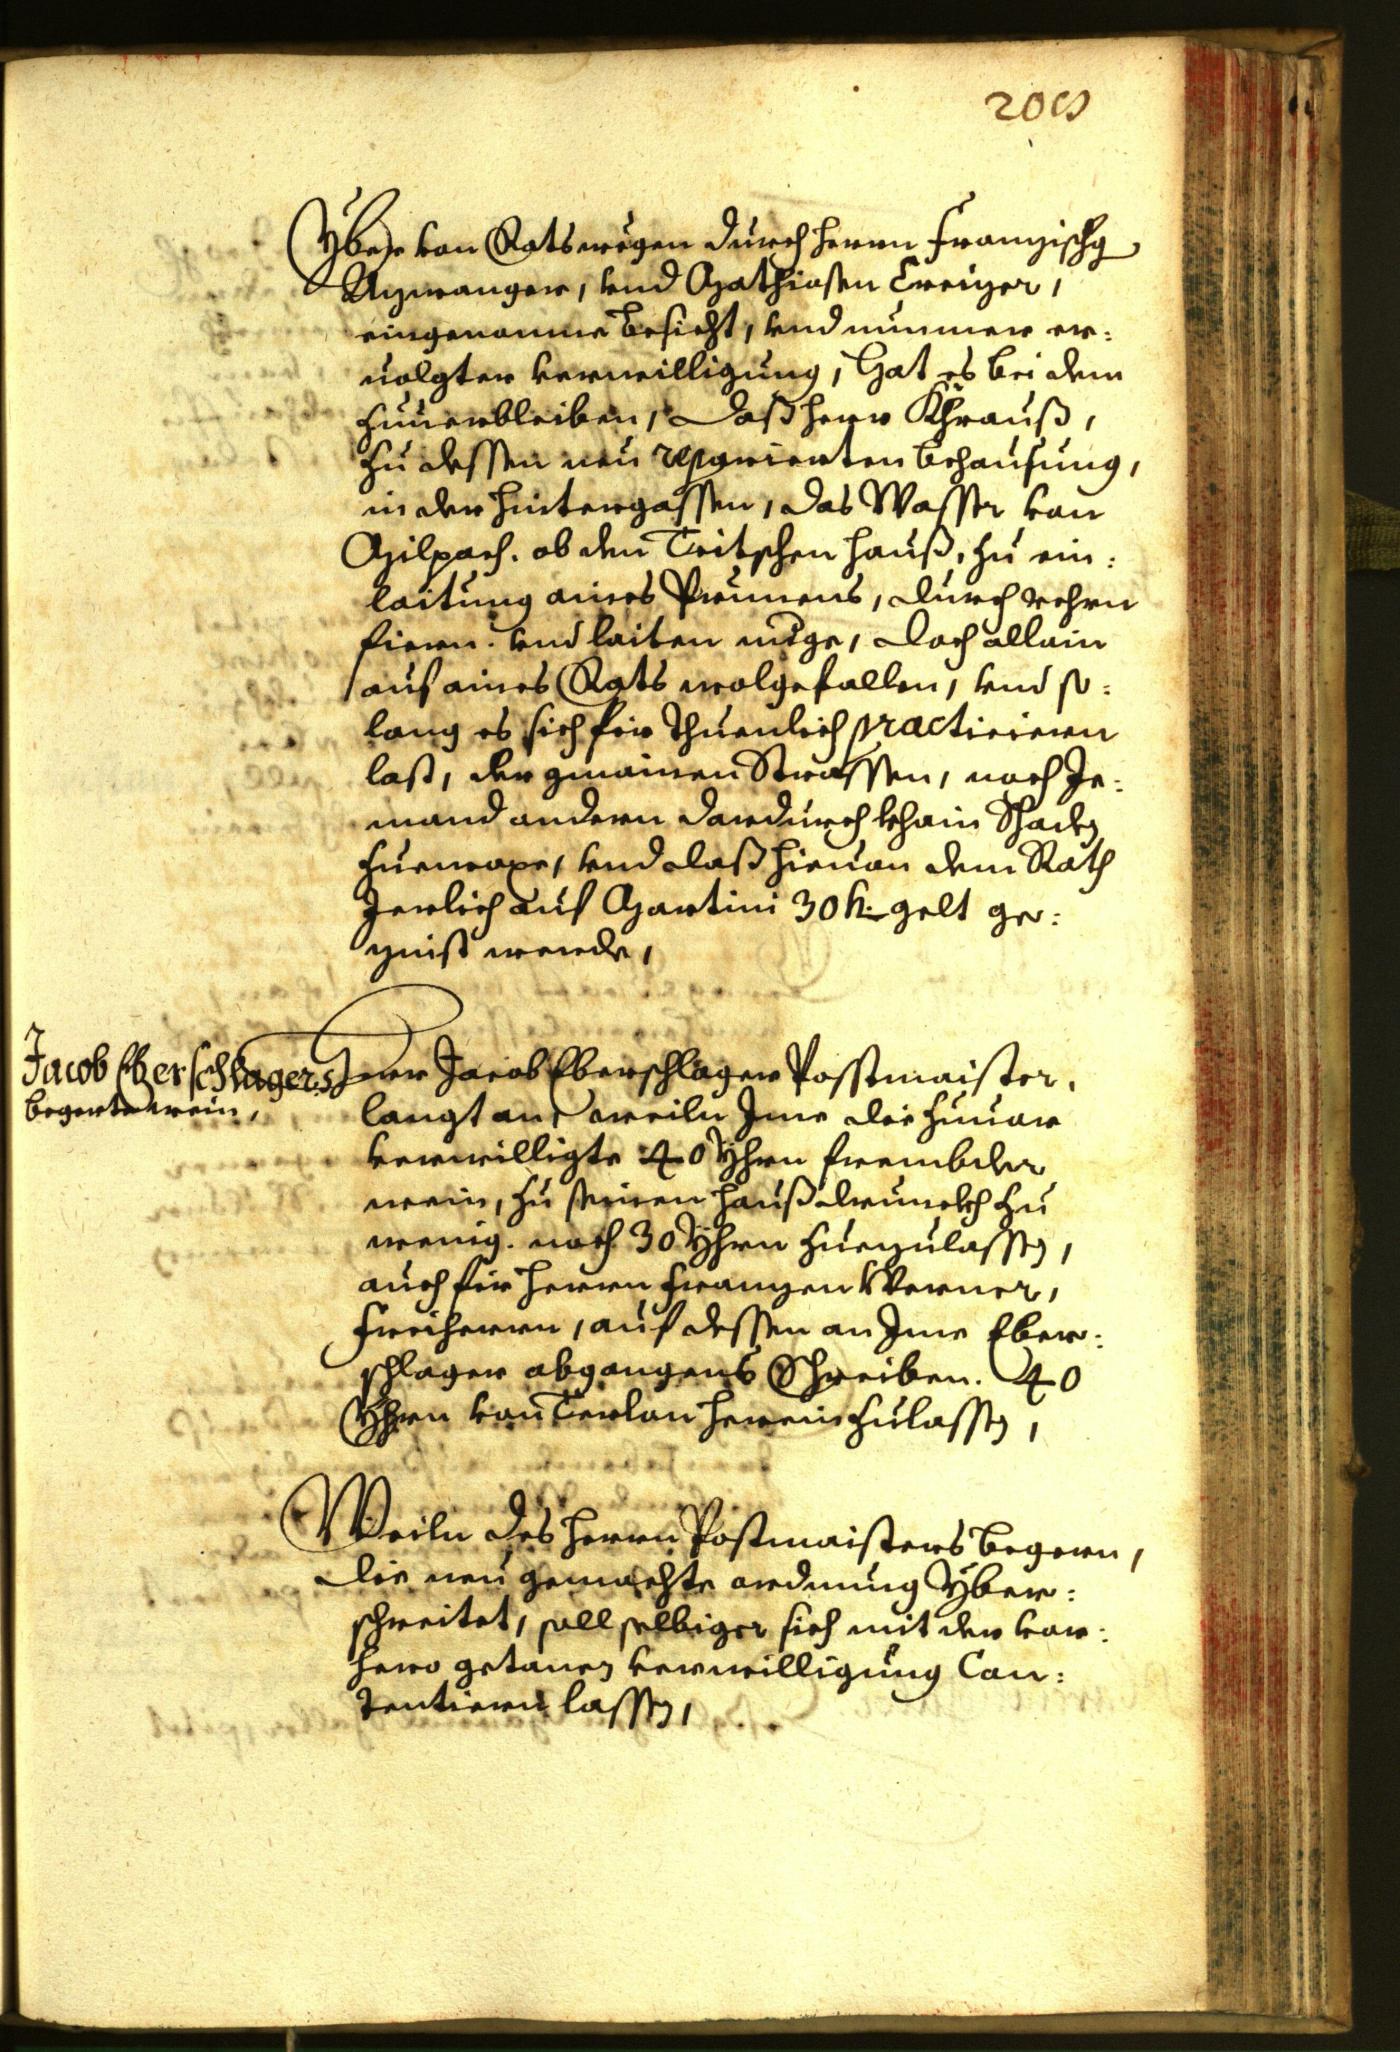 Yber von Rats wegen durch herrn Franzischg
Azwanger, vnd Mathiasen Creizer,
eingenomne besicht, vnd nunmer er:
uolgter verwilligung, Hat es bei dem
zuuerbleiben, daß herr Khrauß,
zu dessen neu reparierten behausung,
in der hintergassen, das Wasser von
Milpach. ob den Teitschen hauß, zu ein:
laitung aines Prunnens, durch rehrn
fiern. vnd laiten mige, doch allain
auf aines Rats wolgefallen, vnd so:
lang es sich fir thuenlich practiciern
last, der gmainen Strassen, noch Je:
mand andern dardurch khain Schaden
zuewaxe, vnd daß hieuon dem Rath
Jerlich auf Martini 30 k. gelt ge:
zinst werde,
Jacob Eberschlagers
begerte wein,
Herr Jacob Eberschlager Postmaister,
langt an, weiln Jme die zuuor
verwilligte 40 Yhrn frembder
wein, zu seinen haußdrunckh zu
wenig. noch 30 Yhrn zuezulassen,
auch fir herrn Franzen Werner,
Freiherrn, auf dessen an Jme Eber:
schlager abgangens Schreiben. 40
Yhrn von Terlan hereinzulassen,
Weiln des herrn Postmaisters begern,
die neu gemachte ordnung Yber:
schreitet, soll selbiger sich mit der vor:
hero getanen verwilligung Con:
tentiern lassen,